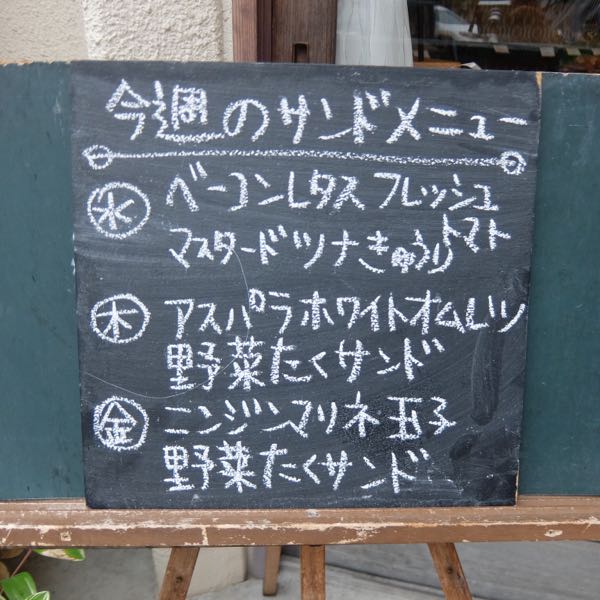 今週のサンドメニュー
水 ベーコンレタス フレッシュトマト
マスタードツナきゅうり
木 アスパラホワイトオムレツ
野菜たくサンド
金 ニンジンマリネ玉子
野菜たくサンド